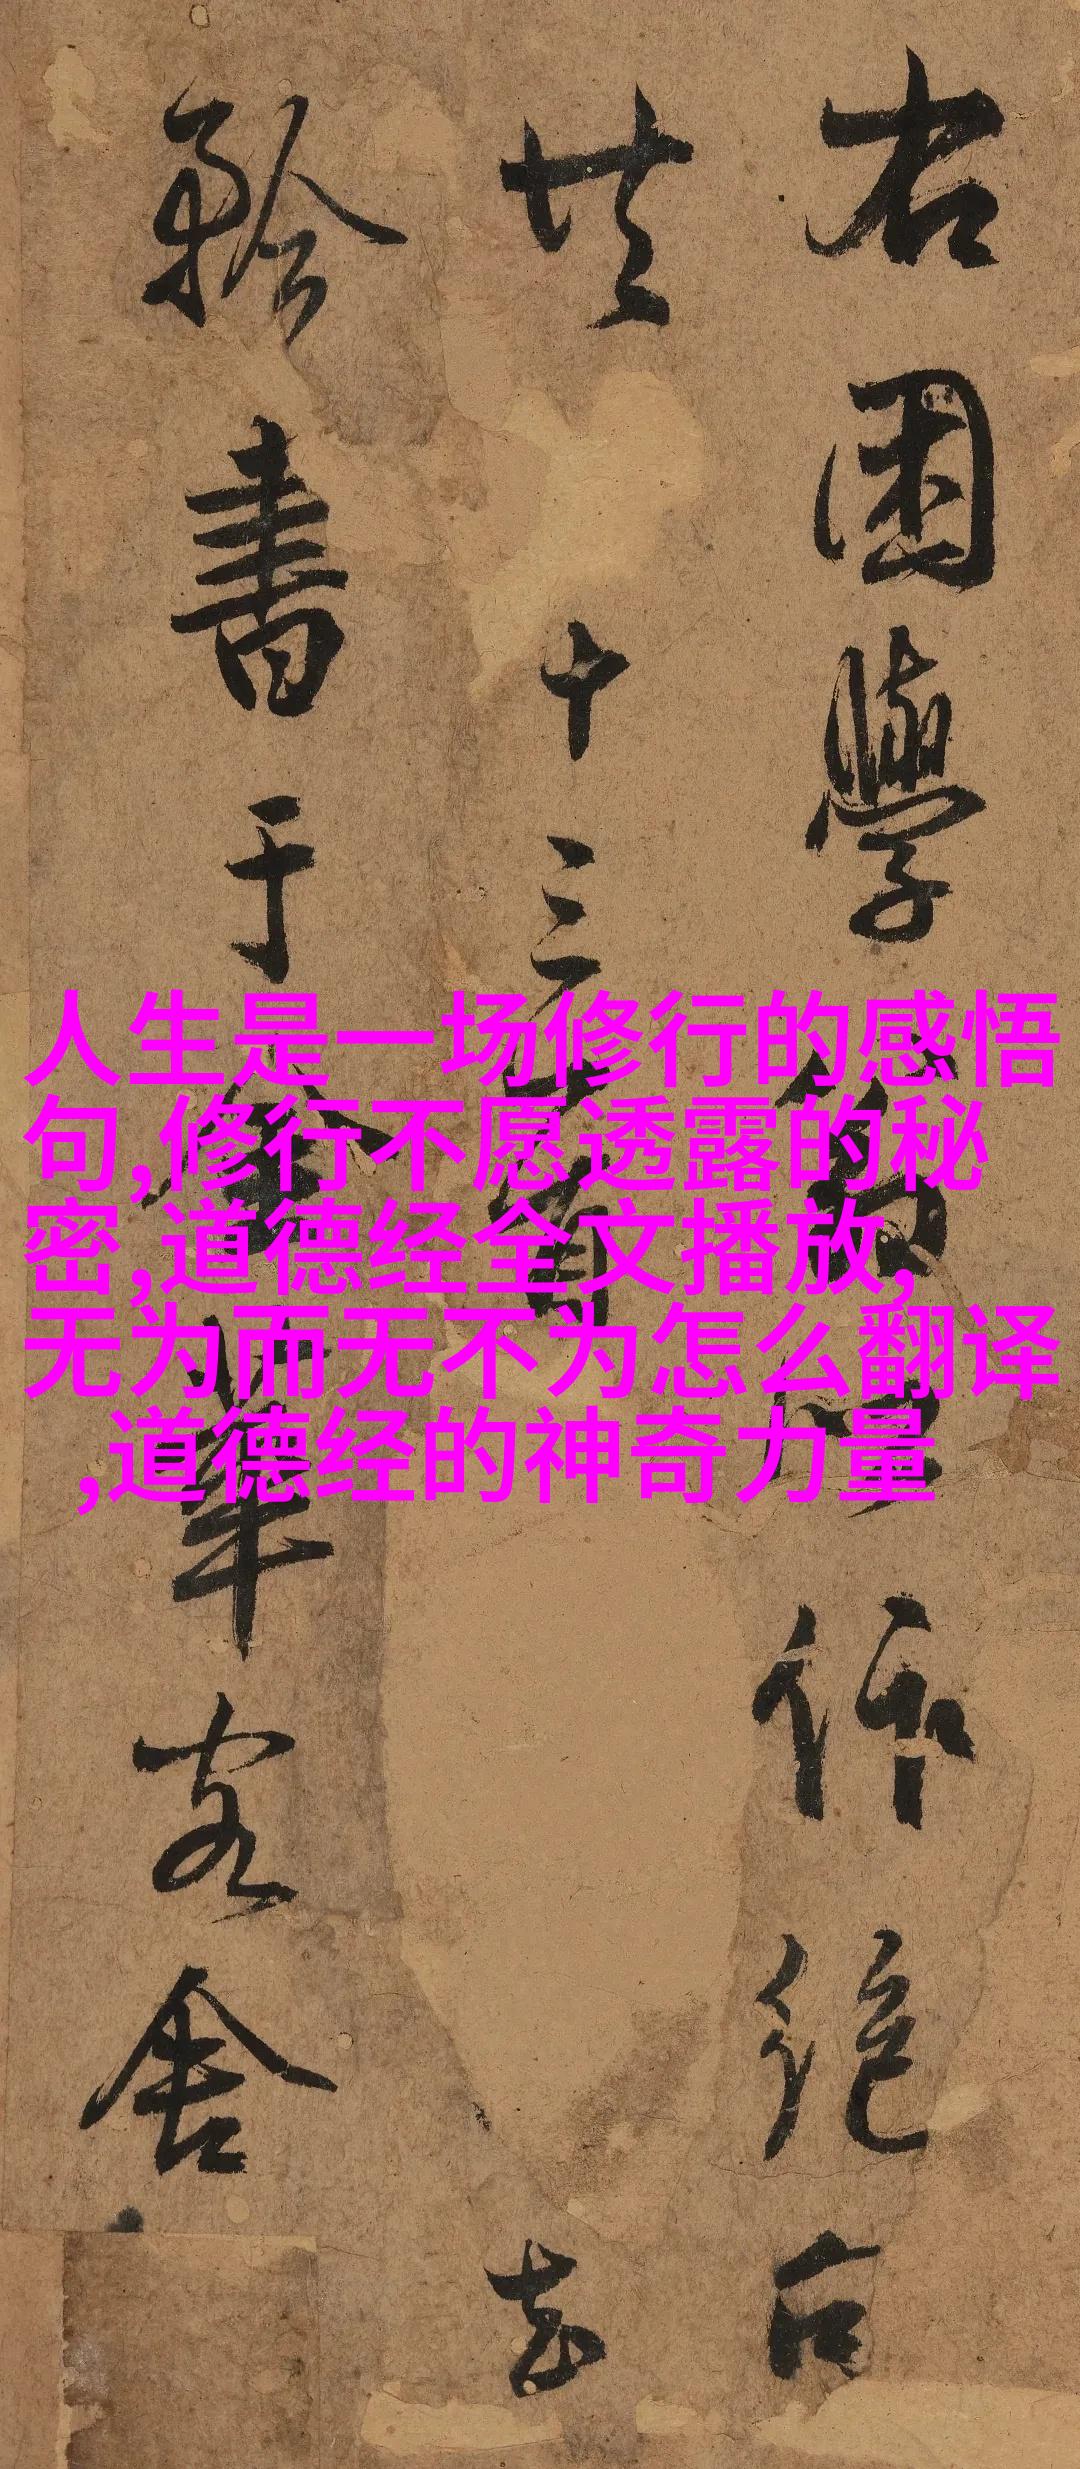 右困學作絶句
共十三首
書于客舍
人生是一场修行的感悟
句,修行不愿透露的秘
密,道德经全文播放,
无为而无不为怎么翻译
,道德经的神奇力量